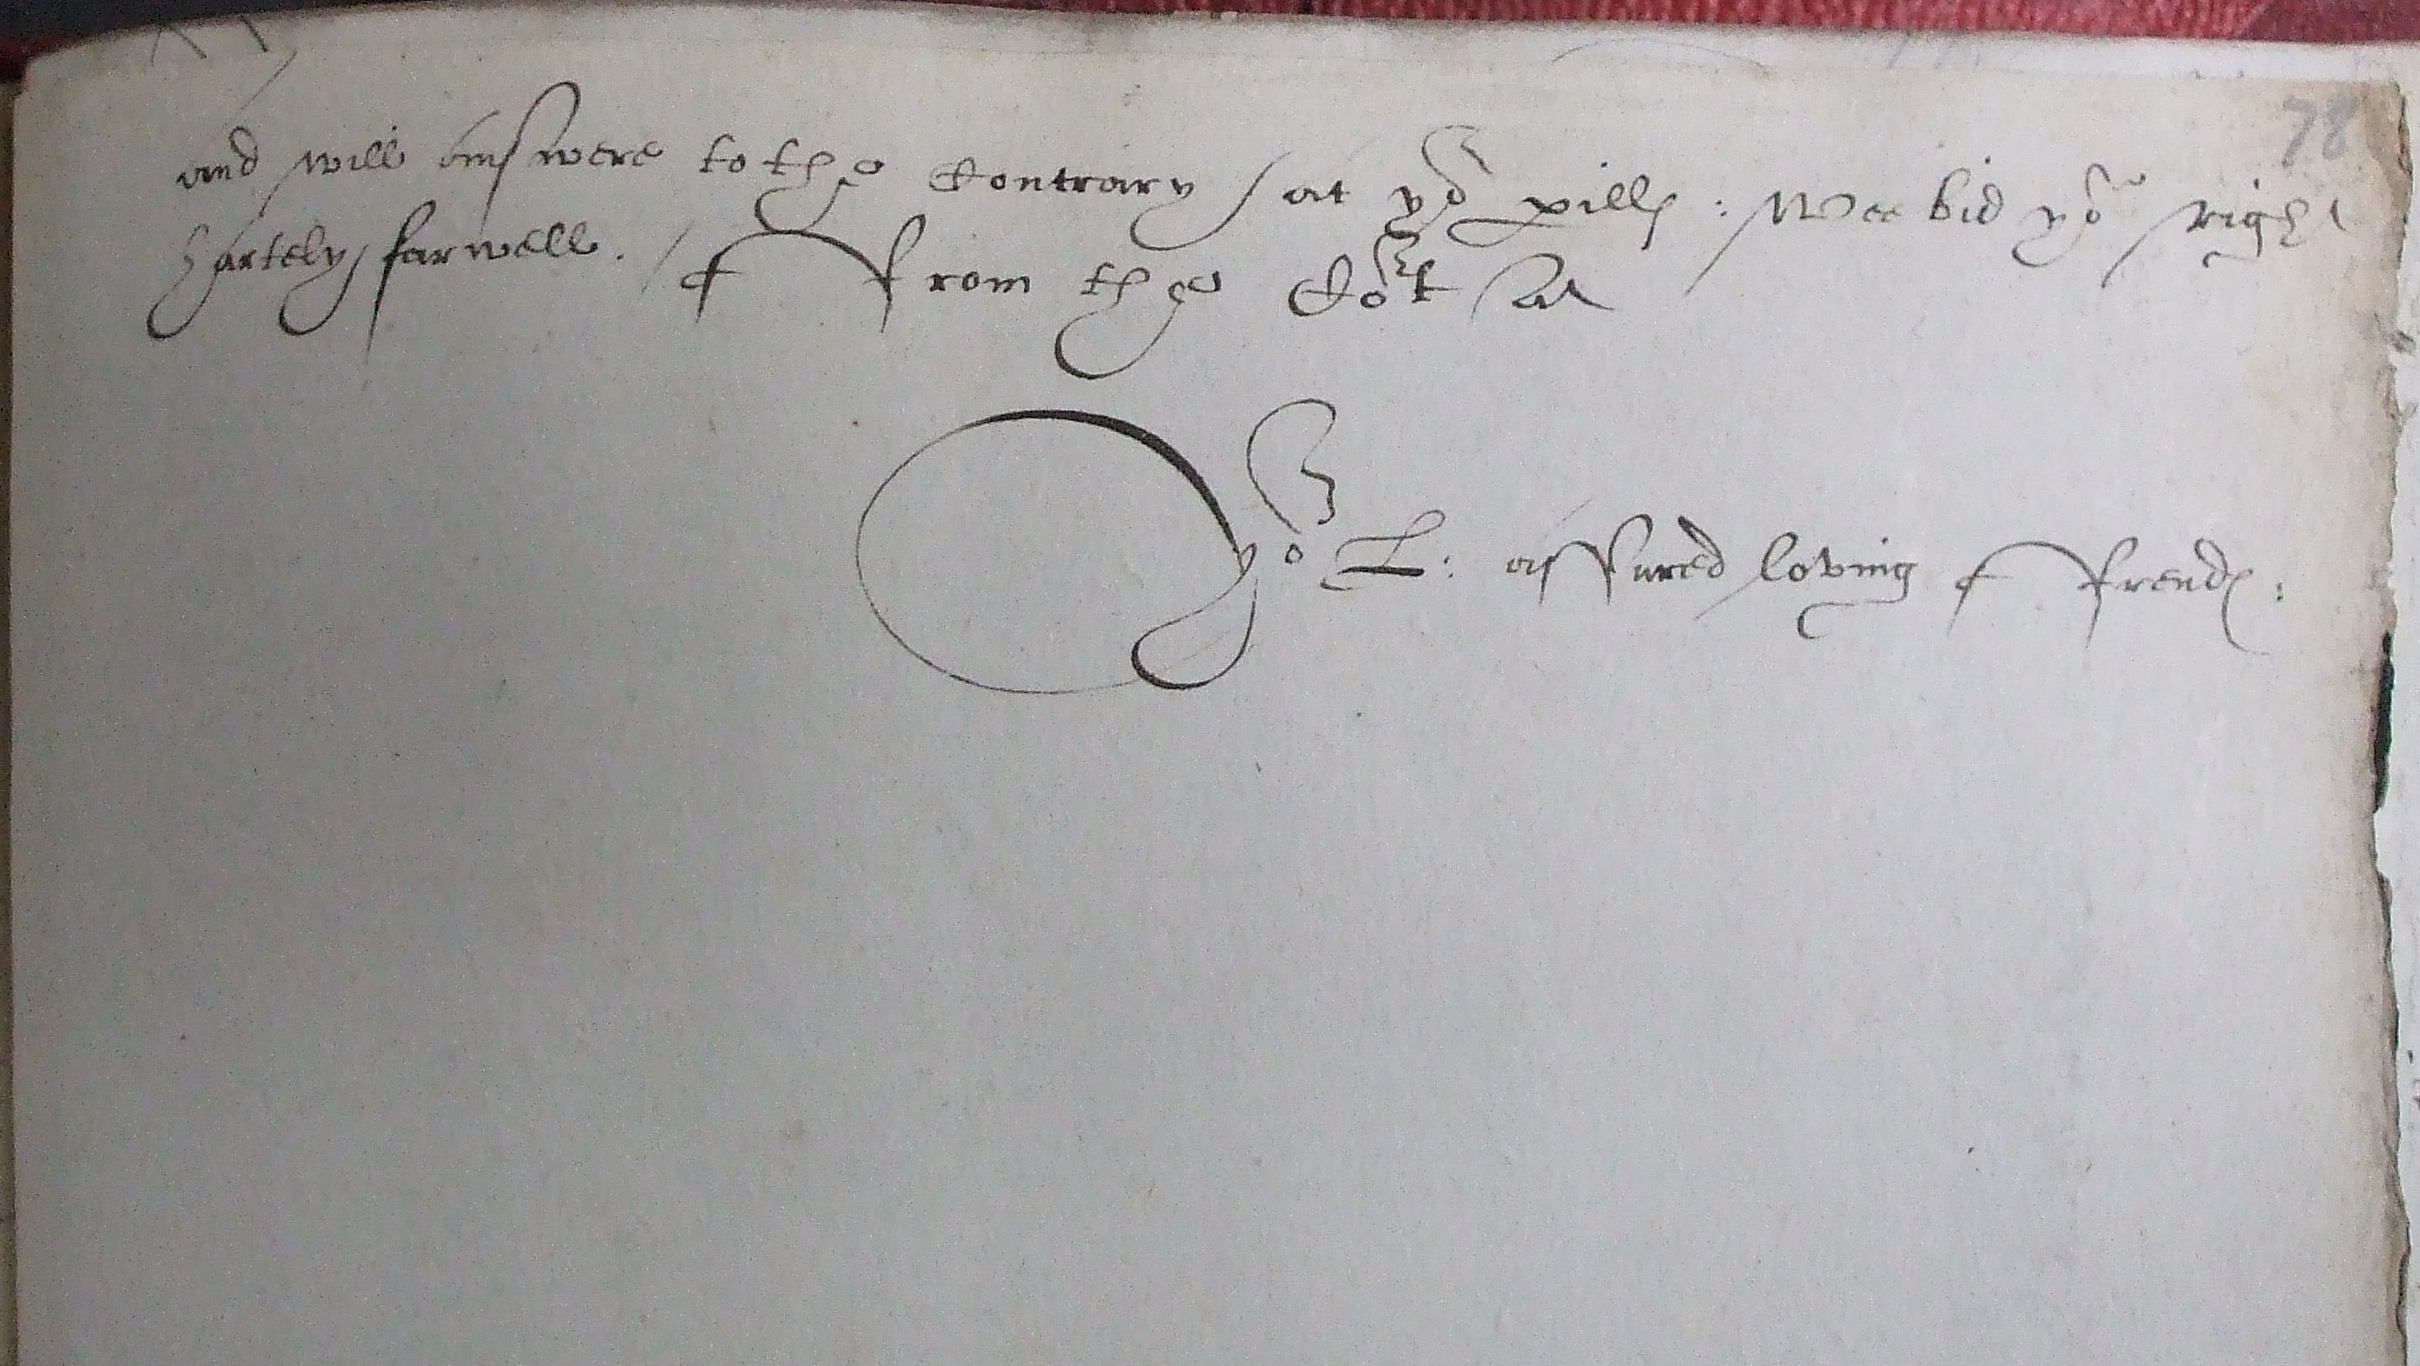 78
and will answere to the Contrary / at yor perills : Wee bid you right
hartely farwell. / ffrom the Cort At
yor L: assured loving ffrendes :